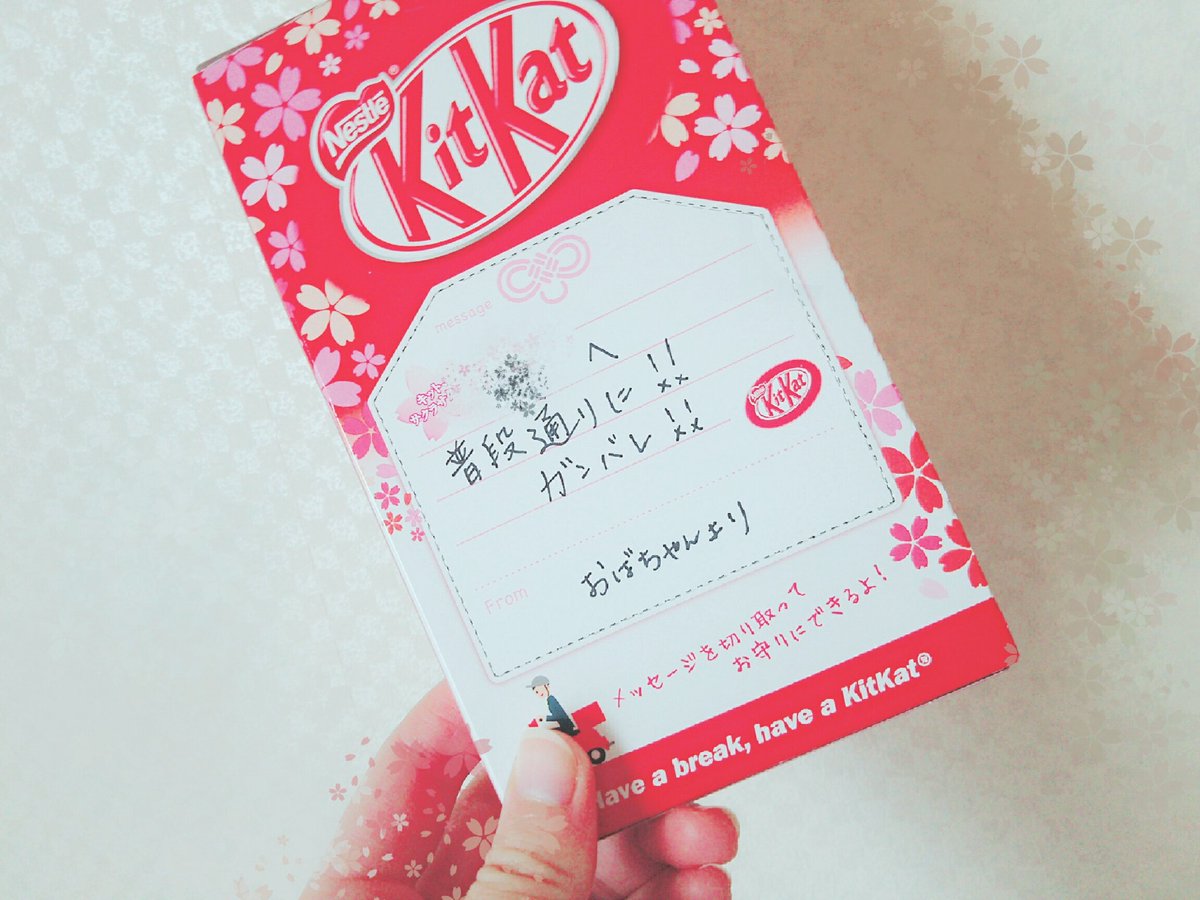 Nestlé
KitKat®
message
へ
キット
サクラサク
普段通りに!!
ガンバレ!!
Nestlé
KitKat
From
おばちゃんより
メッセージを切り取って
お守りにできるよ!
Have a break, have a KitKat®